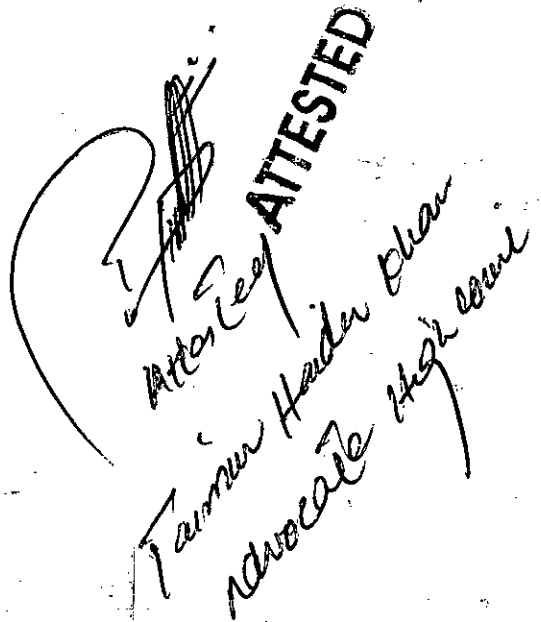 ATTESTED
Attested
Taimur Haider Khan
Advocate High Court